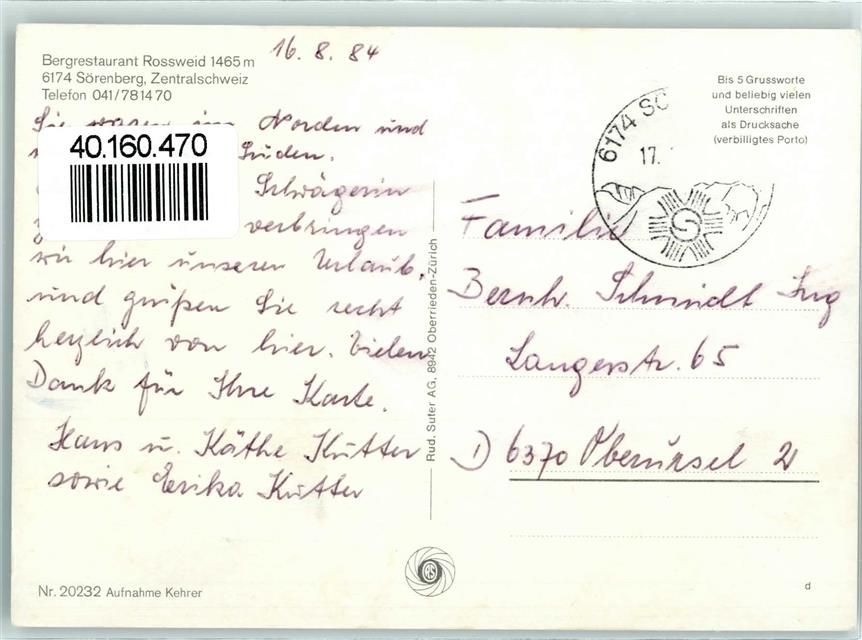 Bergrestaurant Rossweid 1465 m
6174 Sörenberg, Zentralschweiz
Telefon 041/78 14 70
16. 8. 84
Sie waren im Norden und
Süden.
40.160.470
Schwägerin
verbringen
wir hier unseren Urlaub,
und grüßen Sie recht
herzlich von hier. Vielen
Dank für Ihre Karte.
Hans u. Käthe Kutter
sowie Erika Kutter
Nr. 20232 Aufnahme Kehrer
Rud. Suter AG, 8942 Oberrieden-Zürich
Bis 5 Grussworte
und beliebig vielen
Unterschriften
als Drucksache
(verbilligtes Porto)
6174 SÖ
17.
Familie
Bernh. Schmidt Ing
Langerstr. 65
D 6370 Oberursel
d